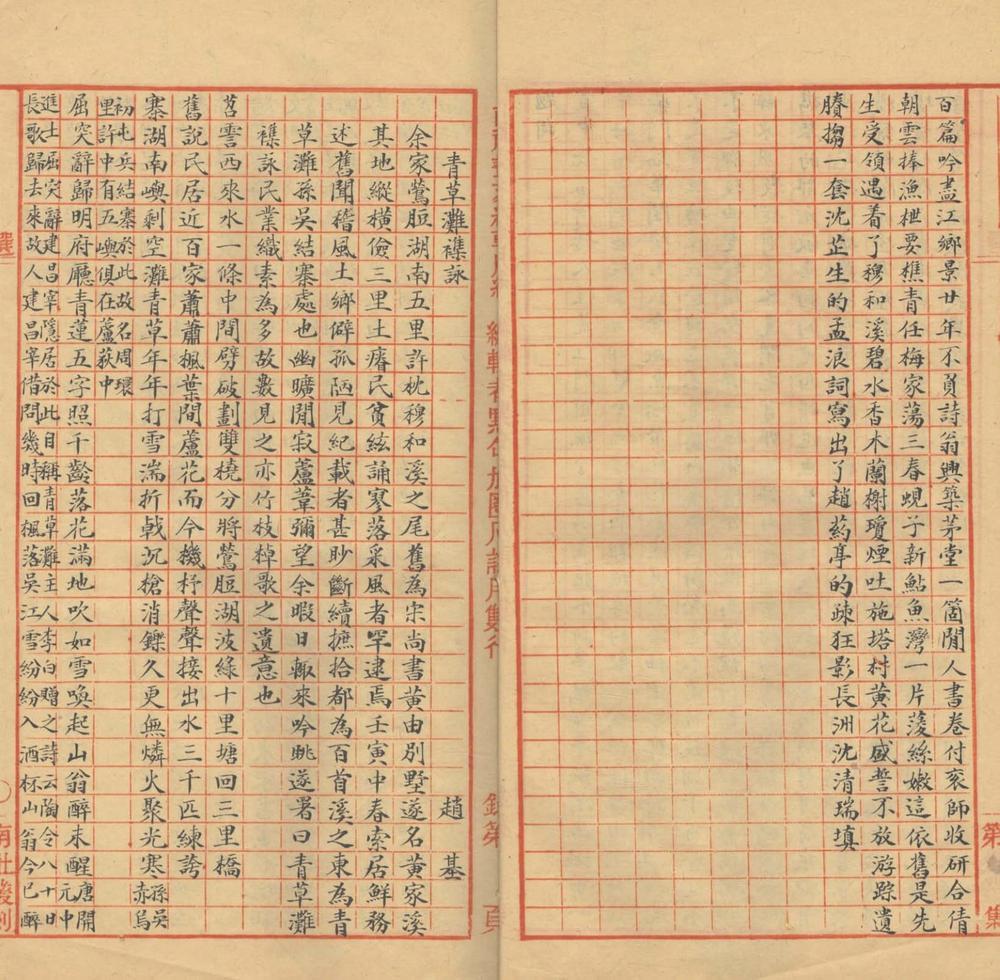 百篇吟盡江鄉景廿年不負詩翁興築茅堂一箇閒人書卷付衮師收研合倩
朝雲捧漁枻要樵青任梅家蕩三春蜆子新鮎魚灣一片蓤絲嫩這依舊是先
生受領遇着了穆和溪碧水杳木蘭榭瓊煙吐施塔村黃花盛誓不放游踪遺
賸搊一套沈芷生的孟浪詞寫出了趙葯亭的疎狂影長洲沈清瑞填
第
集
頁
青草灘襍詠
趙 基
余家鶯脰湖南五里許枕穆和溪之尾舊為宋尚書黃由別墅遂名黃家溪
其地縱橫儉三里土瘠民貧絃誦寥落采風者罕逮焉壬寅中春索居鮮務
述舊聞稽風土鄉僻孤陋見紀載者甚眇斷續摭拾都為百首溪之東為青
草灘孫吳結寨處也幽曠閒寂蘆葦彌望余暇日輒來吟眺遂署曰青草灘
襍詠民業織素為多故數見之亦竹枝棹歌之遺意也
苕霅西來水一條中間劈破劃雙橈分將鶯脰湖波綠十里塘回三里橋
舊說民居近百家蕭蕭楓葉間蘆花而今機杼聲聲接出水三千匹練誇
寨湖南嶼剩空灘青草年年打雪湍折戟沉槍消鑠久更無燐火聚光寒
孫吳
赤烏
初屯兵結寨於此故名周環
里許中有五嶼俱在蘆荻中
屈突辭歸明府廳青蓮五字照千齡落花滿地吹如雪喚起山翁醉未醒
唐開
元中
進士屈突辭建昌宰隱居於此自稱青草灘主人李白贈之詩云陶令八十日
長歌歸去來故人建昌宰借問幾時回楓落吳江雪紛紛入酒杯山翁今已醉
選
南社叢刻